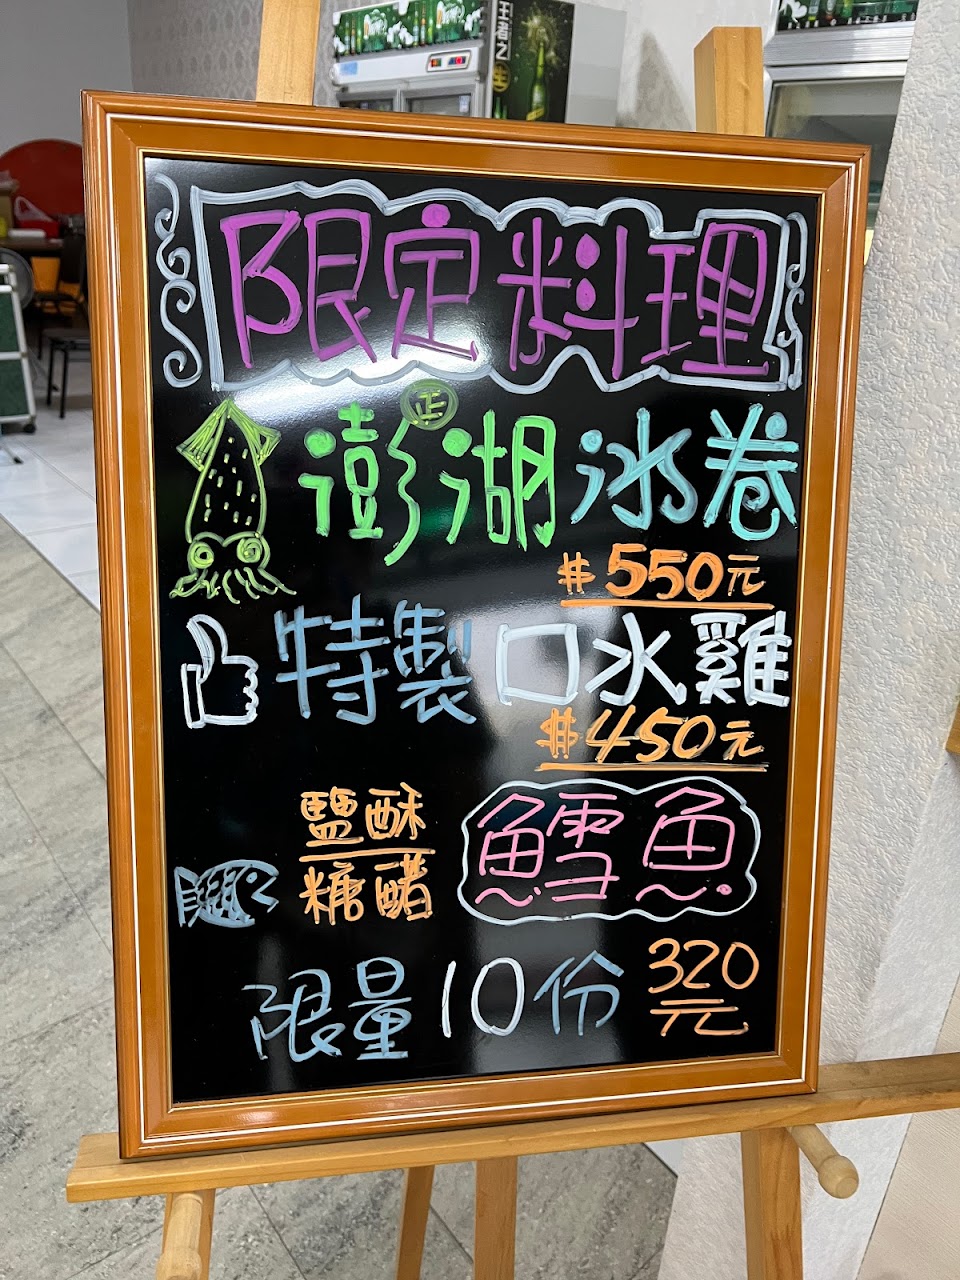 限定料理
正
澎湖冰卷
$550元
特製口水雞
$450元
鹽酥
糖醋
鱈魚
限量10份
320元